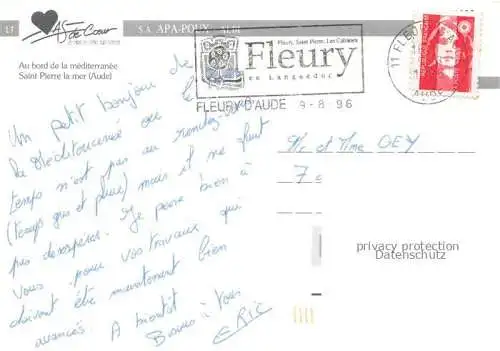 As de Cœur
S.A. APA-POUX
Au bord de la méditerranée
Saint Pierre la mer (Aude)
Fleury, Saint Pierre, Les Cabanes
Fleury
en Languedoc
FLEURY D'AUDE 9-8-96
11 FLEU
AUDE
Un petit bonjour de
la Méditerranée où le
temps n'est pas au rendez-vous
(temps gris et pluie) mais il ne faut
pas désespérer. Je pense bien à
vous pour vos travaux qui
doivent être maintenant bien
avancés A bientôt
Bisous à tous
ERIC
Mr et Mme GEY
7
privacy protection
Datenschutz